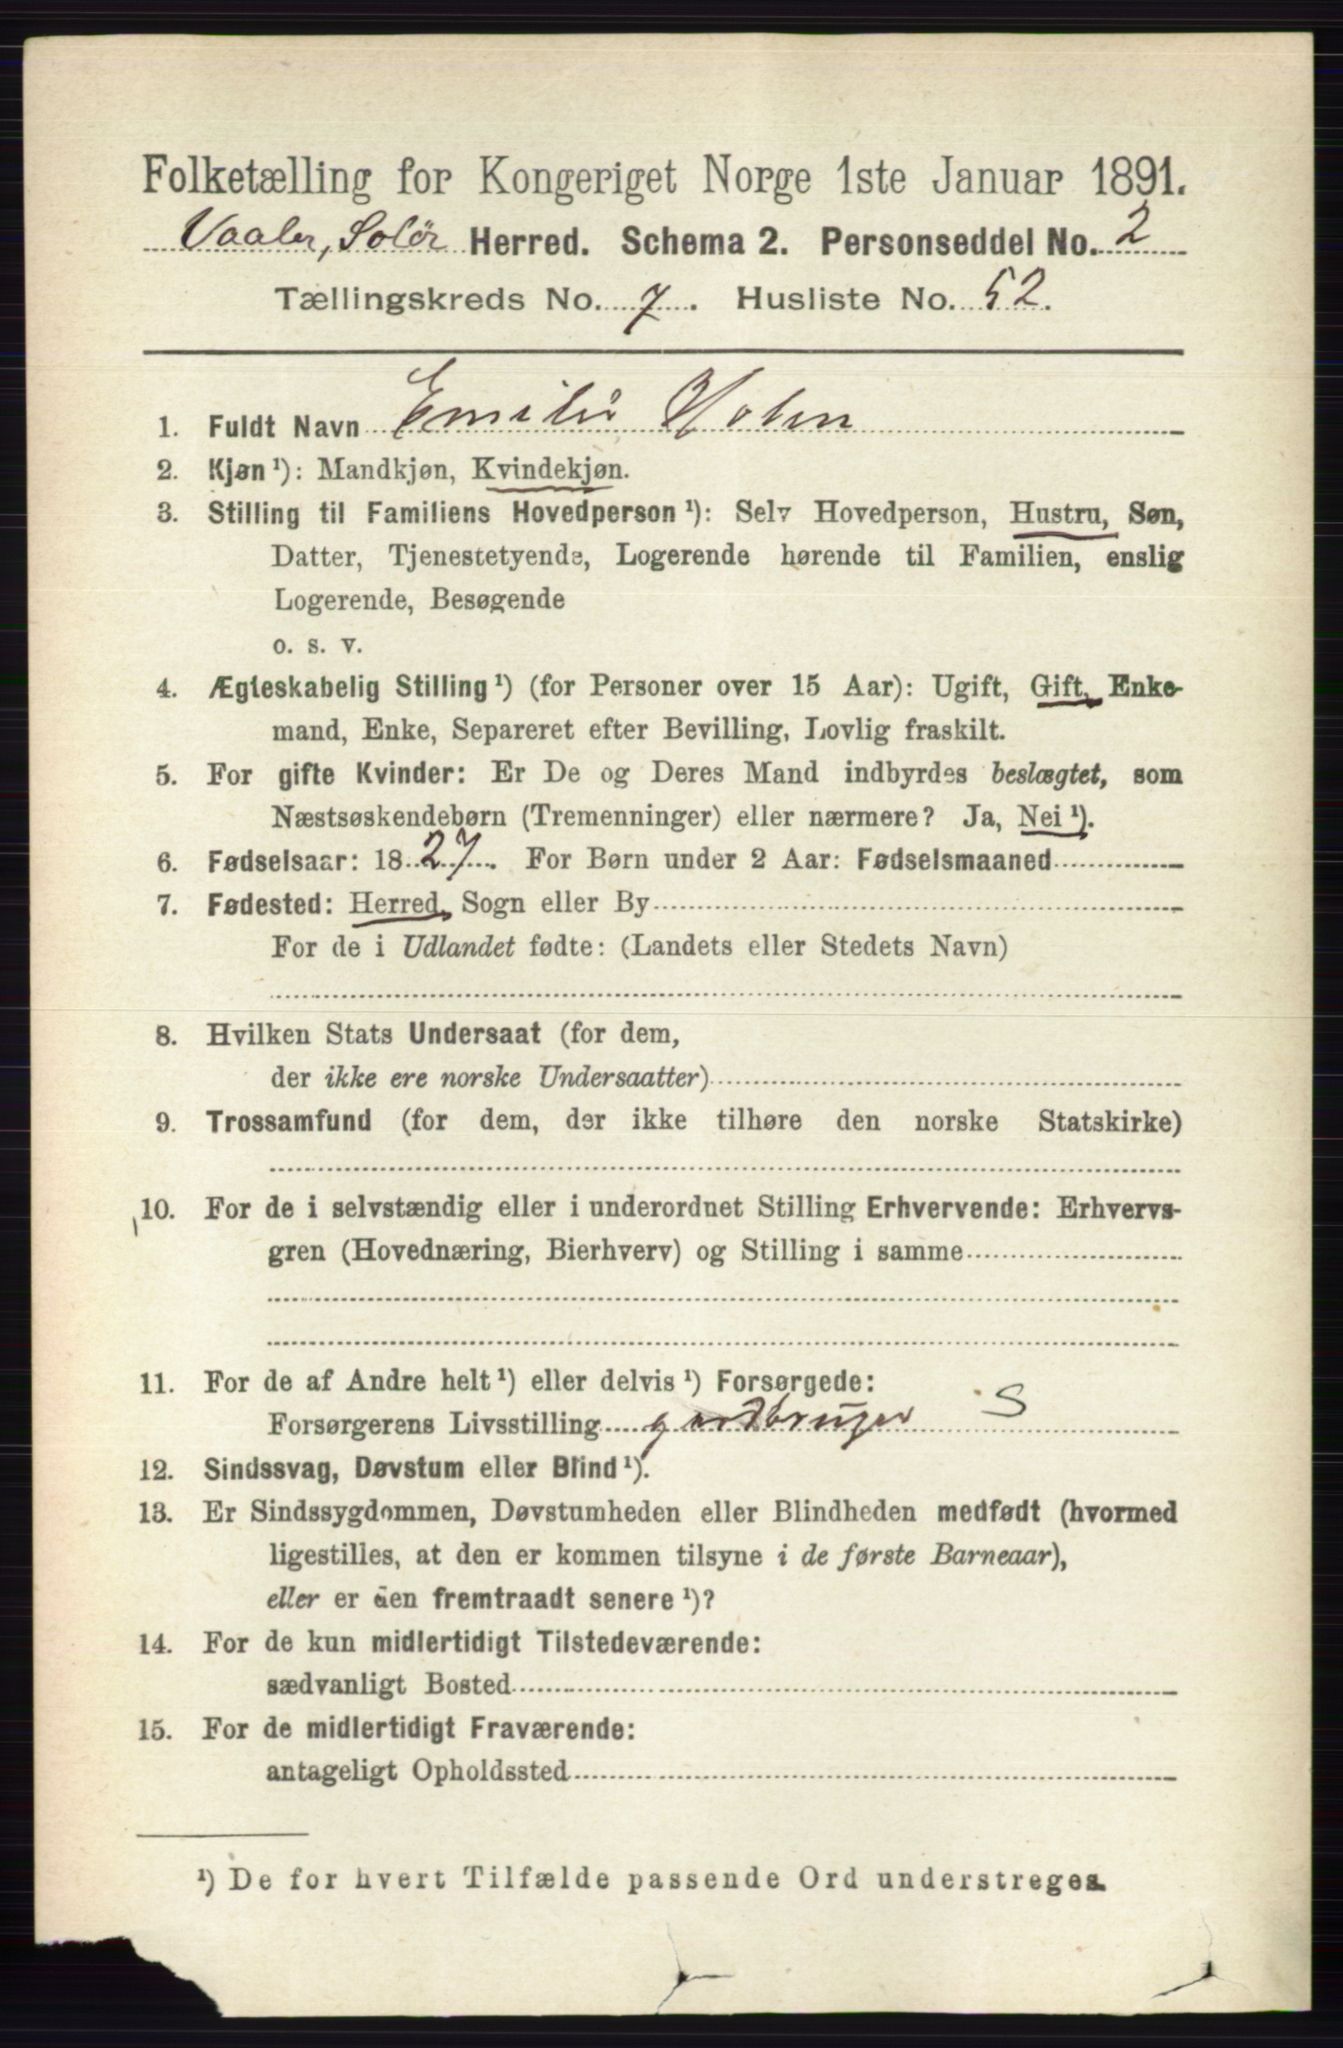 Folketælling for Kongeriget Norge 1ste Januar 1891.
Vaaler, Solör Herred. Schema 2. Personseddel No. 2
Tællingskreds No. 7. Husliste No. 52.
1. Fuldt Navn Emilie Holen
2. Kjøn ¹): Mandkjøn, Kvindekjøn.
3. Stilling til Familiens Hovedperson ¹): Selv Hovedperson, Hustru, Søn,
Datter, Tjenestetyende, Logerende hørende til Familien, enslig
Logerende, Besøgende
o. s. v.
4. Ægteskabelig Stilling ¹) (for Personer over 15 Aar): Ugift, Gift, Enke-
mand, Enke, Separeret efter Bevilling, Lovlig fraskilt.
5. For gifte Kvinder: Er De og Deres Mand indbyrdes beslægtet, som
Næstsøskendebørn (Tremenninger) eller nærmere? Ja, Nei ¹).
6. Fødselsaar: 1827. For Børn under 2 Aar: Fødselsmaaned
7. Fødested: Herred, Sogn eller By
For de i Udlandet fødte: (Landets eller Stedets Navn)
8. Hvilken Stats Undersaat (for dem,
der ikke ere norske Undersaatter)
9. Trossamfund (for dem, der ikke tilhøre den norske Statskirke)
10. For de i selvstændig eller i underordnet Stilling Erhvervende: Erhvervs-
gren (Hovednæring, Bierhverv) og Stilling i samme
11. For de af Andre helt ¹) eller delvis ¹) Forsørgede:
Forsørgerens Livsstilling gardbruger S
12. Sindssvag, Døvstum eller Blind ¹).
13. Er Sindssygdommen, Døvstumheden eller Blindheden medfødt (hvormed
ligestilles, at den er kommen tilsyne i de første Barneaar),
eller er den fremtraadt senere ¹)?
14. For de kun midlertidigt Tilstedeværende:
sædvanligt Bosted
15. For de midlertidigt Fraværende:
antageligt Opholdssted
¹) De for hvert Tilfælde passende Ord understreges.